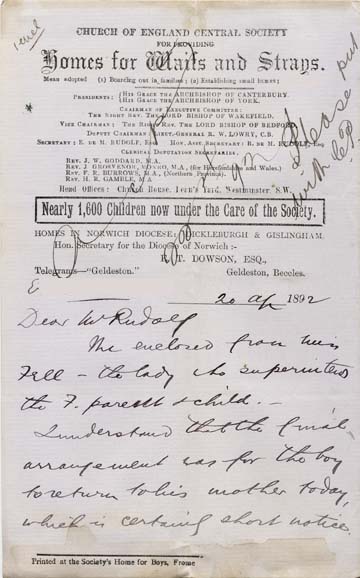 CHURCH OF ENGLAND CENTRAL SOCIETY
FOR PROVIDING
Homes for Waifs and Strays.
Means adopted (1) Boarding out in families; (2) Establishing small homes;
PRESIDENTS: HIS GRACE THE ARCHBISHOP OF CANTERBURY.
HIS GRACE THE ARCHBISHOP OF YORK.
CHAIRMAN OF EXECUTIVE COMMITTEE:
THE RIGHT REV. THE LORD BISHOP OF WAKEFIELD.
VICE CHAIRMAN: THE RIGHT REV. THE LORD BISHOP OF BEDFORD
DEPUTY CHAIRMAN LIEUT.-GENERAL R. W. LOWRY, C.B.
SECRETARY: E. DE M. RUDOLF, ESQ. HON. ASST. SECRETARY: R. DE M. RUDOLF, ESQ.
CLERICAL DEPUTATION SECRETARIES,
REV. J. W. GODDARD, M.A.
REV. J. GROSVENOR, M.A., (for Herefordshire and Wales.)
REV. F. R. BURROWS, M.A., (Northern Province).
REV. H. R. GAMBLE, M.A.
HEAD OFFICES: Church House, Dean's Yard, Westminster, S.W.
Nearly 1,600 Children now under the Care of the Society.
HOMES IN NORWICH DIOCESE; DICKLEBURGH & GISLINGHAM.
Hon. Secretary for the Diocese of Norwich:-
R. T. DOWSON, ESQ.,
Telegrams—"Geldeston." Geldeston, Beccles.
20 Ap 1892
Dear Mr Rudolf
The enclosed from Miss
Fell - the lady who superintends
the F. parent & child. -
I understand that the final
arrangement was for the boy
to return to his mother today,
which is certainly short notice.
Printed at the Society's Home for Boys, Frome